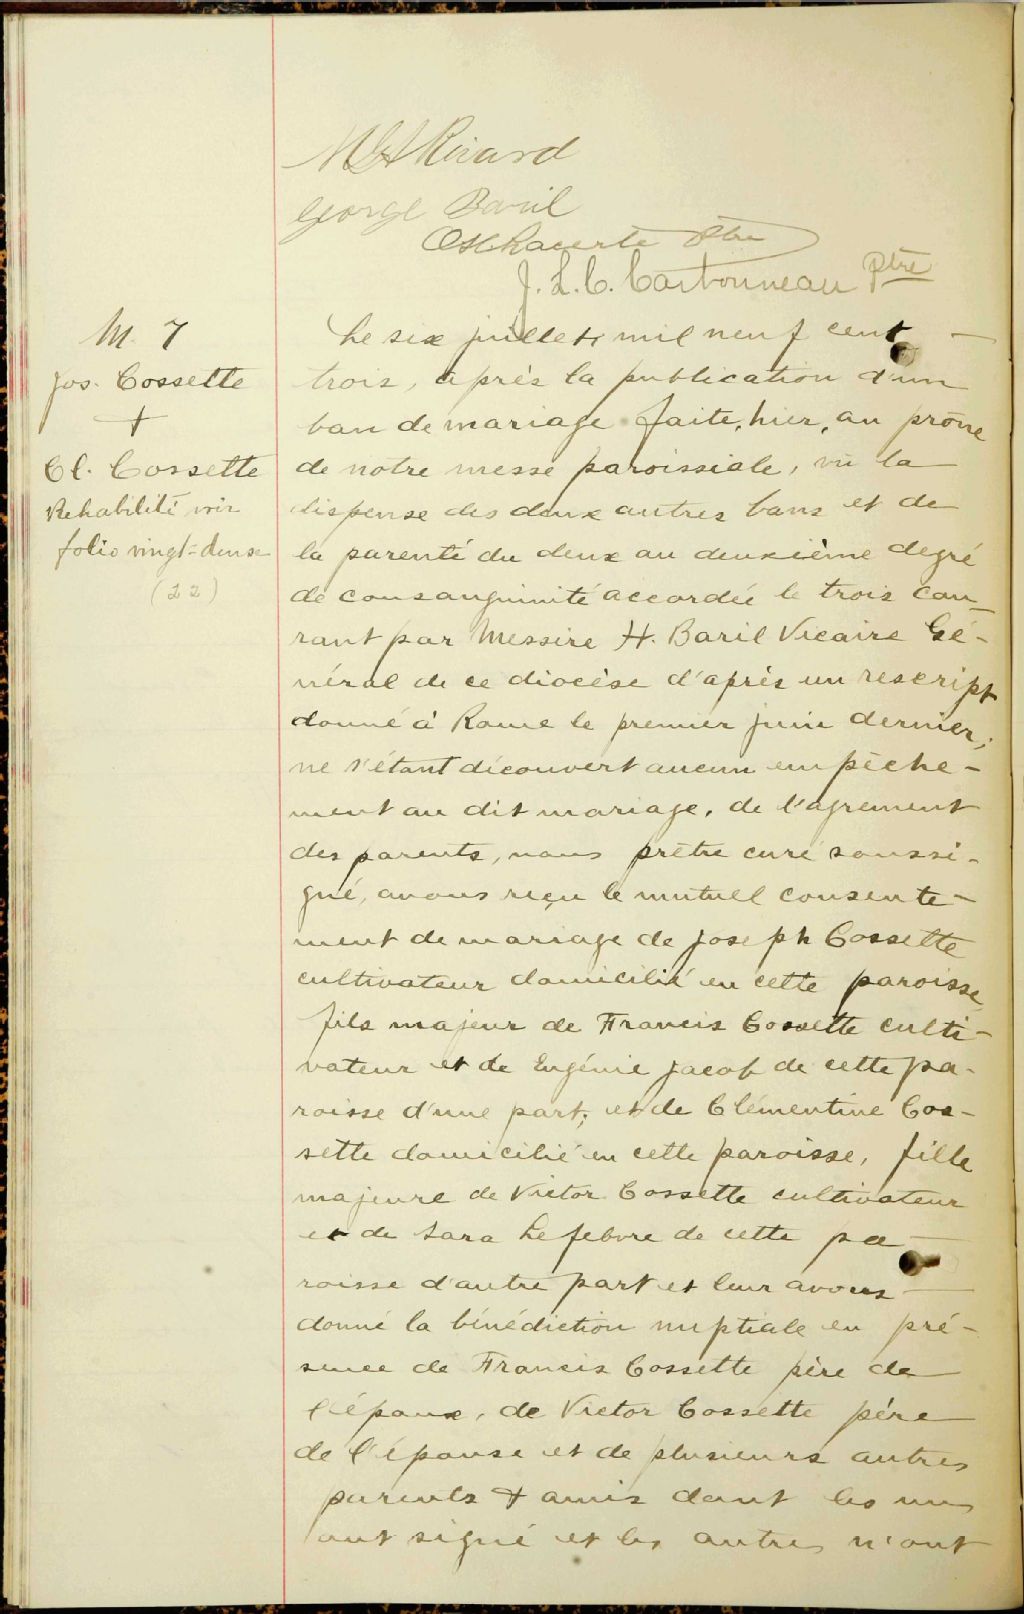 M A Rivard
George Baril
Lacerte Ptre
J. L. C. Carbonneau Ptre
M. 7
Jos. Cossette
+
Cl. Cossette
Rehabilité voir
folio vingt-deux
(22)
Le six juillet mil neuf cent
trois, après la publication d'un
ban de mariage faite, hier, au prône
de notre messe paroissiale, vu la
dispense des deux autres bans et de
la parenté du deux au deuxième degré
de consanguinité accordée le trois cou-
rant par Messire H. Baril Vicaire Gé-
néral de ce diocèse d'après un rescript
donné à Rome le premier juin dernier;
ne s'étant découvert aucun empêche-
ment au dit mariage, de l'agrement
des parents, nous prêtre curé soussi-
gné, avons reçu le mutuel consente-
ment de mariage de Joseph Cossette
cultivateur domicilié en cette paroisse,
fils majeur de Francis Cossette culti-
vateur et de Eugénie Jacob de cette pa-
roisse d'une part; et de Clémentine Cos-
sette domicilié en cette paroisse, fille
majeure de Victor Cossette cultivateur
et de Sara Lefebvre de cette pa
roisse d'autre part et leur avons
donné la bénédiction nuptiale en pré-
sence de Francis Cossette père de
l'époux, de Victor Cossette père
de l'épouse et de plusieurs autres
parents & amis dont les uns
ont signé et les autres n'ont